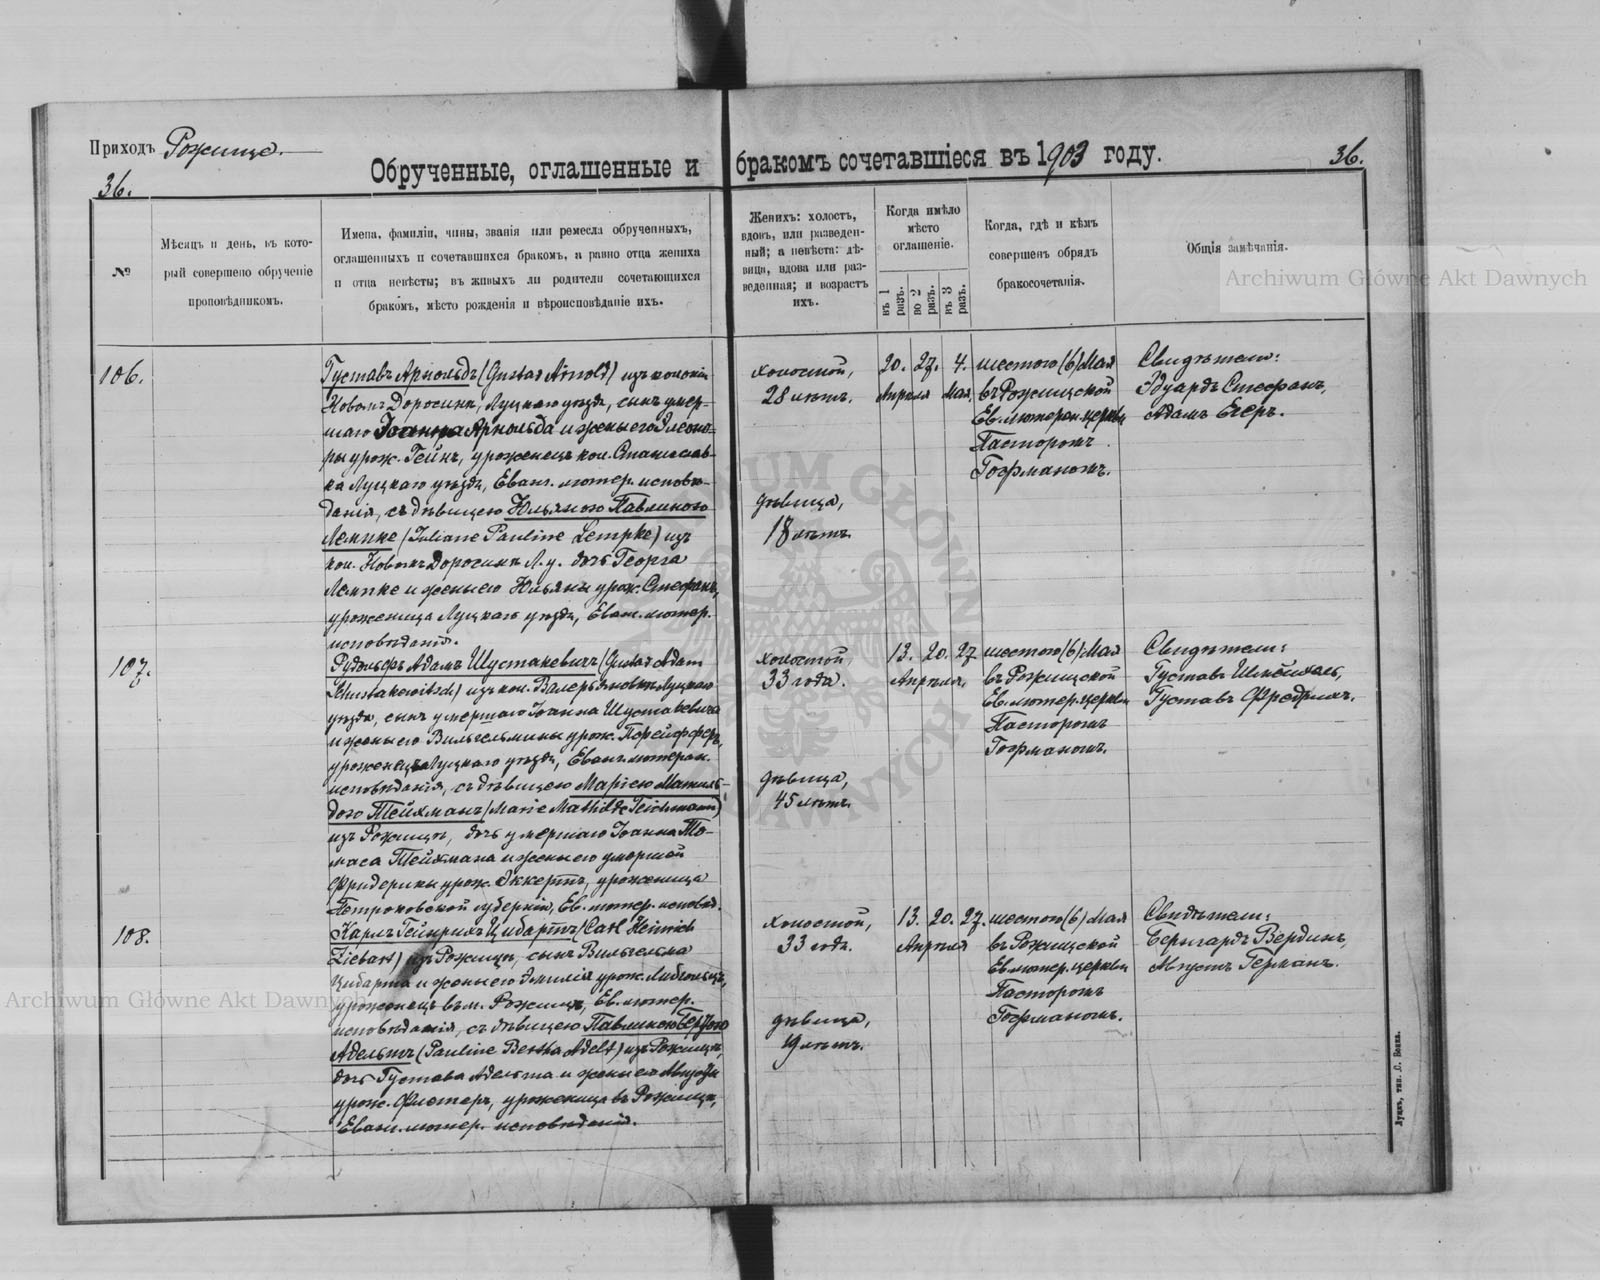 Приходъ Рожище.
36.
Обрученные, оглашенные и бракомъ сочетавшіеся въ 1903 году.
36.
№
Мѣсяцъ и день, въ кото-
рый совершено обрученіе
проповѣдникомъ.
Имена, фамиліи, чины, званія или ремесла обрученныхъ,
оглашенныхъ и сочетавшихся бракомъ, а равно отца жениха
и отца невѣсты; въ живыхъ ли родители сочетающихся
бракомъ, мѣсто рожденія и вѣроисповѣданіе ихъ.
Женихъ: холостъ,
вдовъ, или разведен-
ный; а невѣста: дѣ-
вица, вдова или раз-
веденная; и возрастъ
ихъ.
Когда имѣло
мѣсто
оглашеніе.
въ 1 разъ.
во 2 разъ.
въ 3 разъ.
Когда, гдѣ и кѣмъ
совершенъ обрядъ
бракосочетанія.
Общія замѣчанія.
106.
Густавъ Арнольдъ (Gustav Arnold) изъ колоніи
Новыхъ Доросинъ, Луцкаго уѣзда, сынъ умер-
шаго Арнольда и жены его Элеоно-
ры урож. Гейнъ, уроженецъ кол. Станислав-
ка Луцкаго уѣзда, Еванг. лютер. исповѣ-
данія, съ дѣвицею Юльяною Павлиною
Лемпке (Juliane Pauline Lempke) изъ
кол. Новыхъ Доросинъ Л. у. дочь Георга
Лемпке и жены его Юльяны урож. Стефанъ,
уроженица Луцкаго уѣзда, Еванг. лютер.
исповѣданія.
холостой,
28 лѣтъ.
дѣвица,
18 лѣтъ.
20. 27. 4.
Апрѣля Мая.
шестого (6) Мая
въ Рожищской
Ев. лютеран. церкви
Пасторомъ
Гофманомъ.
Свидѣтели:
Эдуардъ Стефанъ,
Адамъ Егеръ.
107.
Рудольфъ Адамъ Шустакевичъ (Gustav Adam
Schustakewitsch) изъ кол. Валерьяновки Луцкаго
уѣзда, сынъ умершаго Іоанна Шустакевича
и жены его Вильгельмины урож.
уроженецъ Луцкаго уѣзда, Еванг. лютеран.
исповѣданія, съ дѣвицею Маріею Матиль-
дою Тейхманъ (Marie Mathilde Teichmann)
изъ Рожищъ, дочь умершаго Іоанна То-
маса Тейхмана и жены его умершей
Фридерики урож. Эккертъ, уроженица
Петроковской губерніи, Ев. лютер. исповѣд.
холостой,
33 года.
дѣвица,
45 лѣтъ.
13. 20. 27
Апрѣля.
шестого (6) Мая
въ Рожищской
Ев. лютер. церкви
Пасторомъ
Гофманомъ.
Свидѣтели:
Густавъ
Густавъ Фредрихъ.
108.
Карлъ Гейнрихъ Цибартъ (Carl Heinrich
Ziebart) изъ Рожищъ, сынъ Вильгельма
Цибарта и жены его Эмиліи урож.
уроженецъ въ м. Рожищъ, Ев. лютер.
исповѣданія, съ дѣвицею Павлиною Бертою
Адельтъ (Pauline Bertha Adelt) изъ Рожищъ,
дочь Густава Адельта и жены его Августы
урож. Флетеръ, уроженица въ Рожищъ,
Еванг. лютер. исповѣданія.
холостой,
33 года.
дѣвица,
19 лѣтъ.
13. 20. 27.
Апрѣля
шестого (6) Мая
въ Рожищской
Ев. лютер. церкви
Пасторомъ
Гофманомъ.
Свидѣтели:
Бернгардъ Вердинъ,
Августъ Германъ.
Archiwum Główne Akt Dawnych
Archiwum Główne Akt Dawnych